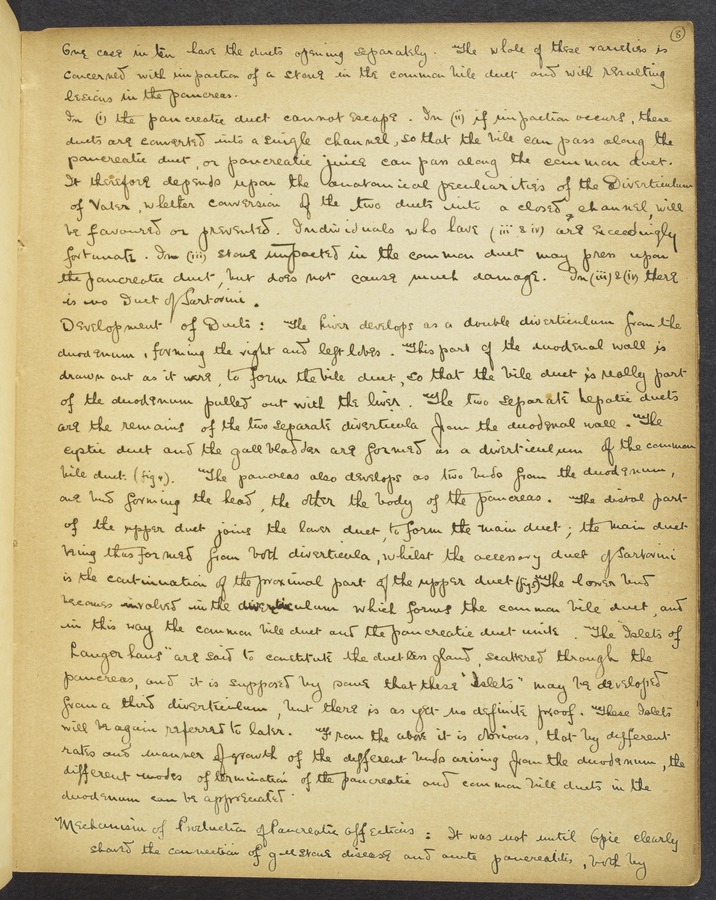 8
One case in ten have the ducts opening separately. The whole of these varieties is
concerned with impaction of a stone in the common bile duct and with resulting
lesions in the pancreas.
In (i) the pancreatic duct cannot escape. In (ii) if impaction occurs, these
ducts are converted into a single channel, so that the bile can pass along the
pancreatic duct, or pancreatic juice can pass along the common duct.
It therefore depends upon the anatomical peculiarities of the Diverticulum
of Vater, whether conversion of the two ducts into a closed channel, will
be favoured or prevented. Individuals who have (iii & iv) are exceedingly
fortunate. In (iii) stone impacted in the common duct may press upon
the pancreatic duct, but does not cause much damage. In (iii) & (iv) there
is no Duct of Sartorini.
Development of Ducts: The liver develops as a double diverticulum from the
duodenum, forming the right and left lobes. This part of the duodenal wall is
drawn out as it were, to form the bile duct, so that the bile duct is really part
of the duodenum pulled out with the liver. The two separate hepatic ducts
are the remains of the two separate diverticula from the duodenal wall. The
cystic duct and the gall bladder are formed as a diverticulum of the common
bile duct. (fig 4). The pancreas also develops as two buds from the duodenum,
one bud forming the head, the other the body of the pancreas. The distal part
of the upper duct joins the lower duct, to form the main duct; the main duct
being thus formed from both diverticula, whilst the accessory duct of Sartorini
is the continuation of the proximal part of the upper duct (fig 5) The lower bud
becomes involved in the diverticulum which forms the common bile duct, and
in this way the common bile duct and the pancreatic duct unite. "The Islets of
Langerhans" are said to constitute the ductless gland, scattered through the
pancreas, and it is supposed by some that these "Islets" may be developed
from a third diverticulum, but there is as yet no definite proof. These Islets
will be again referred to later. From the above it is obvious, that by different
rates and manner of growth of the different buds arising from the duodenum, the
different modes of termination of the pancreatic and common bile ducts in the
duodenum can be appreciated.
Mechanism of Production of Pancreatic affections: It was not until Opie clearly
showed the connection of gallstone disease and acute pancreatitis, both by